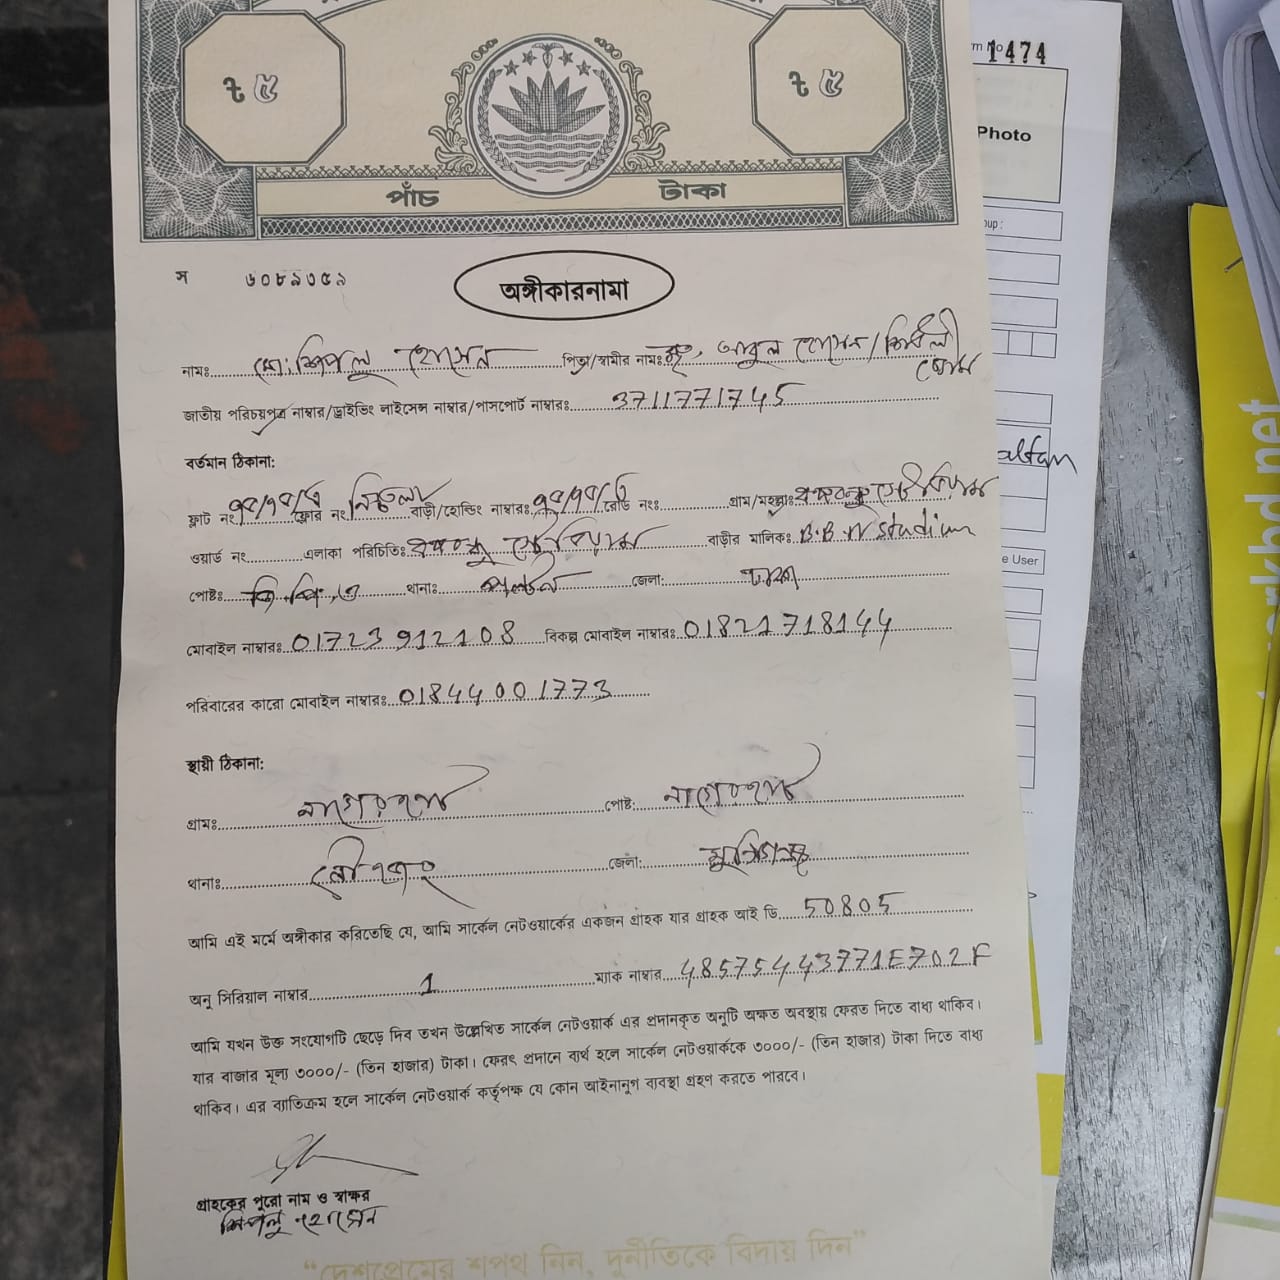 ৳ ৫
৳ ৫
পাঁচ টাকা
rm No 1474
Photo
oup :
স ৬০৮৯৩৫৯
অঙ্গীকারনামা
নামঃ মো: শিপলু হোসেন পিতা/স্বামীর নামঃ মৃত, আবুল হোসেন/
জাতীয় পরিচয়পত্র নাম্বার/ড্রাইভিং লাইসেন্স নাম্বার/পাসপোর্ট নাম্বারঃ 3711771745
বর্তমান ঠিকানা:
ফ্লাট নং ফ্লোর নং নিচতলা বাড়ী/হোল্ডিং নাম্বারঃ রোড নং গ্রাম/মহল্লাঃ বঙ্গবন্ধু স্টেডিয়াম
ওয়ার্ড নং এলাকা পরিচিতিঃ বঙ্গবন্ধু স্টেডিয়াম বাড়ীর মালিকঃ B.B.N Stadium
e User
পোষ্টঃ জি.পি.ও থানাঃ পল্টন জেলা: ঢাকা
মোবাইল নাম্বারঃ 01723912108 বিকল্প মোবাইল নাম্বারঃ 01821718144
পরিবারের কারো মোবাইল নাম্বারঃ 01844001773
স্থায়ী ঠিকানা:
গ্রামঃ নাগেরহাট পোষ্ট: নাগেরহাট
থানাঃ লৌহজং জেলা: মুন্সিগঞ্জ
আমি এই মর্মে অঙ্গীকার করিতেছি যে, আমি সার্কেল নেটওয়ার্কের একজন গ্রাহক যার গ্রাহক আই ডি 50805
অনু সিরিয়াল নাম্বার 1 ম্যাক নাম্বার 48575443771E702F
আমি যখন উক্ত সংযোগটি ছেড়ে দিব তখন উল্লেখিত সার্কেল নেটওয়ার্ক এর প্রদানকৃত অনুটি অক্ষত অবস্থায় ফেরত দিতে বাধ্য থাকিব।
যার বাজার মূল্য ৩০০০/- (তিন হাজার) টাকা। ফেরৎ প্রদানে ব্যর্থ হলে সার্কেল নেটওয়ার্ককে ৩০০০/- (তিন হাজার) টাকা দিতে বাধ্য
থাকিব। এর ব্যতিক্রম হলে সার্কেল নেটওয়ার্ক কর্তৃপক্ষ যে কোন আইনানুগ ব্যবস্থা গ্রহণ করতে পারবে।
গ্রাহকের পুরো নাম ও স্বাক্ষর
শিপলু হোসেন
“দেশপ্রেমের শপথ নিন, দুর্নীতিকে বিদায় দিন”